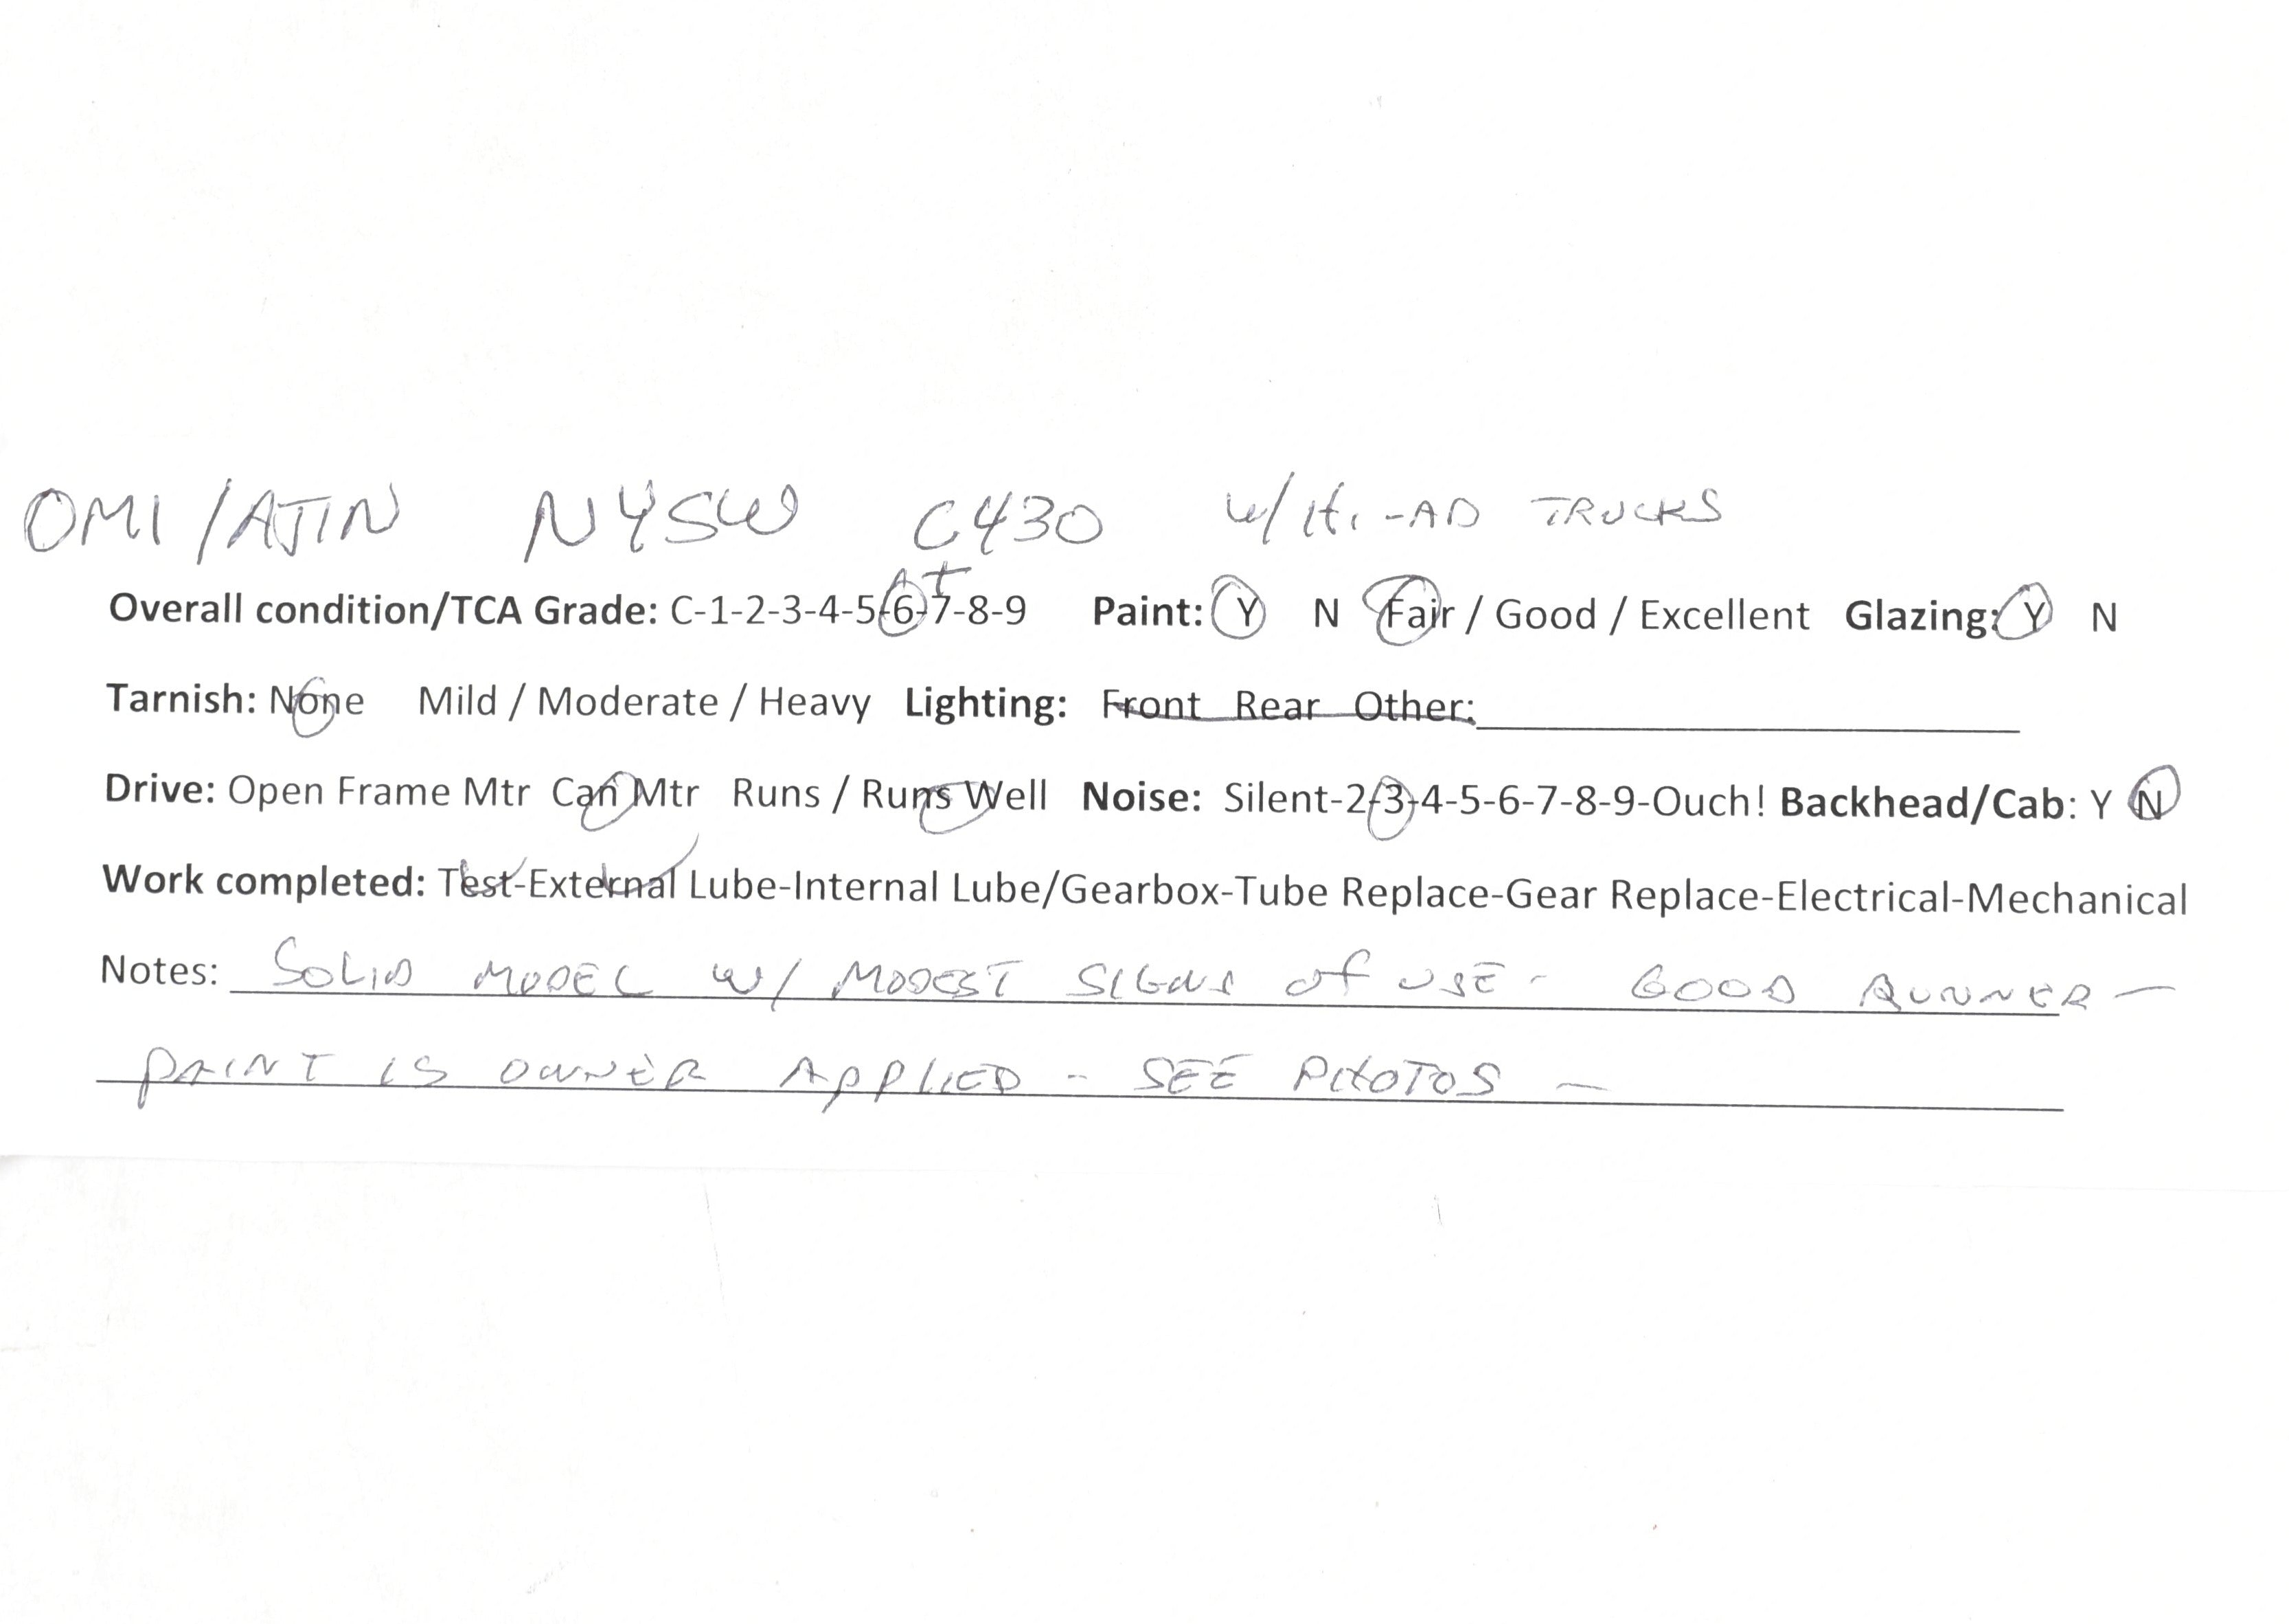 OMI/AJIN NYSW C430 W/ Hi-AD TRUCKS
Overall condition/TCA Grade: C-1-2-3-4-5-6-7-8-9 Paint: Y N Fair / Good / Excellent Glazing: Y N
Tarnish: None Mild / Moderate / Heavy Lighting: Front Rear Other:
Drive: Open Frame Mtr Can Mtr Runs / Runs Well Noise: Silent-2-3-4-5-6-7-8-9-Ouch! Backhead/Cab: Y N
Work completed: Test-External Lube-Internal Lube/Gearbox-Tube Replace-Gear Replace-Electrical-Mechanical
Notes: SOLID MODEL W/ MODEST SIGNS of USE - GOOD RUNNER -
PAINT IS OWNER APPLIED - SEE PHOTOS -